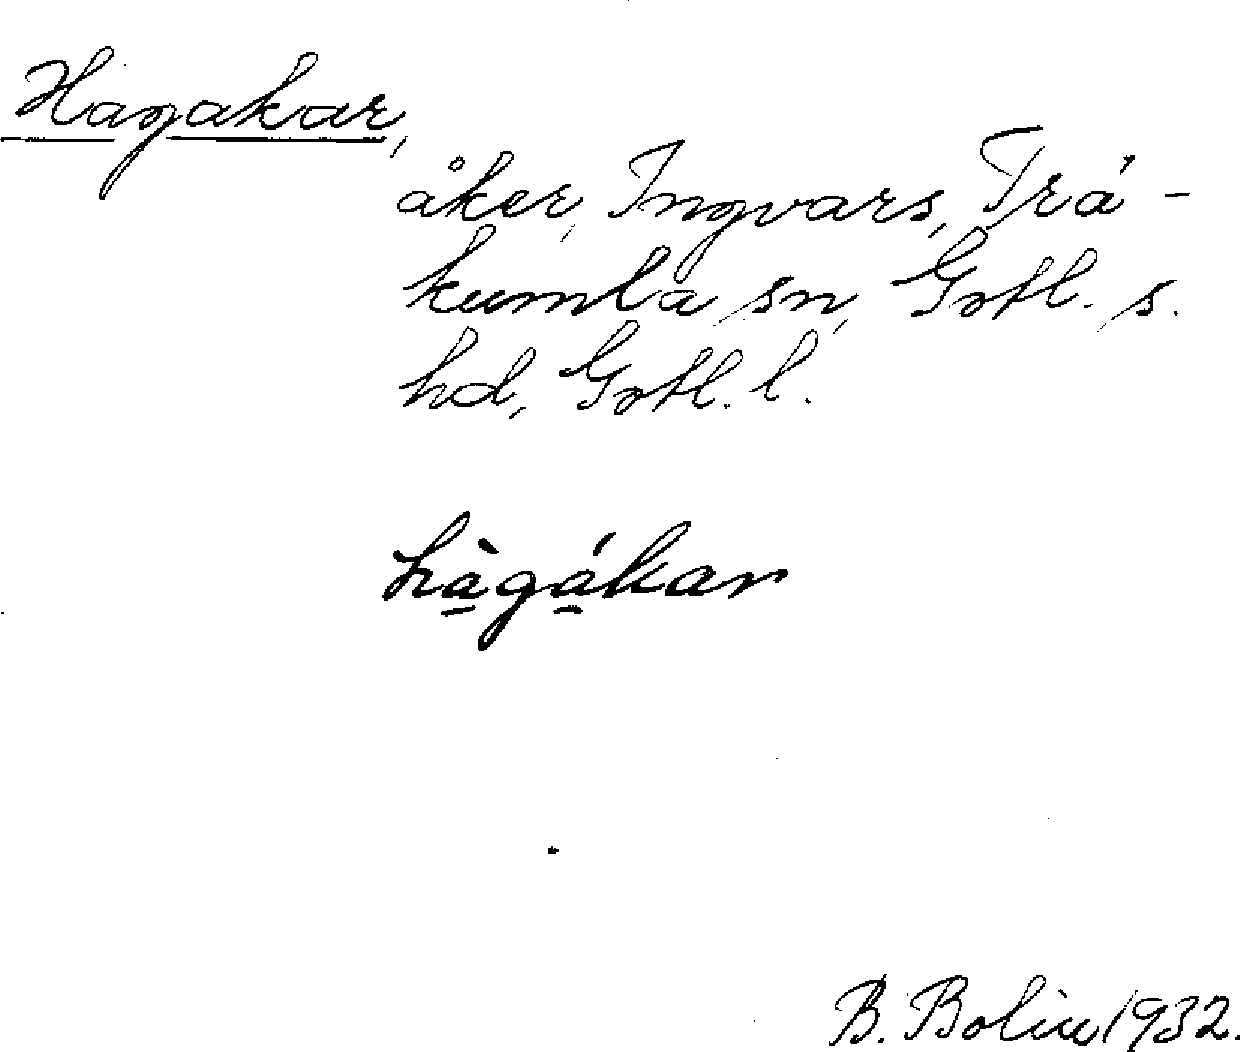 Hagakar,
åker, Ingvars, Trä-
kumla sn, Gotl. s.
hd, Gotl. l.
hàgákar
B. Bolin 1932.